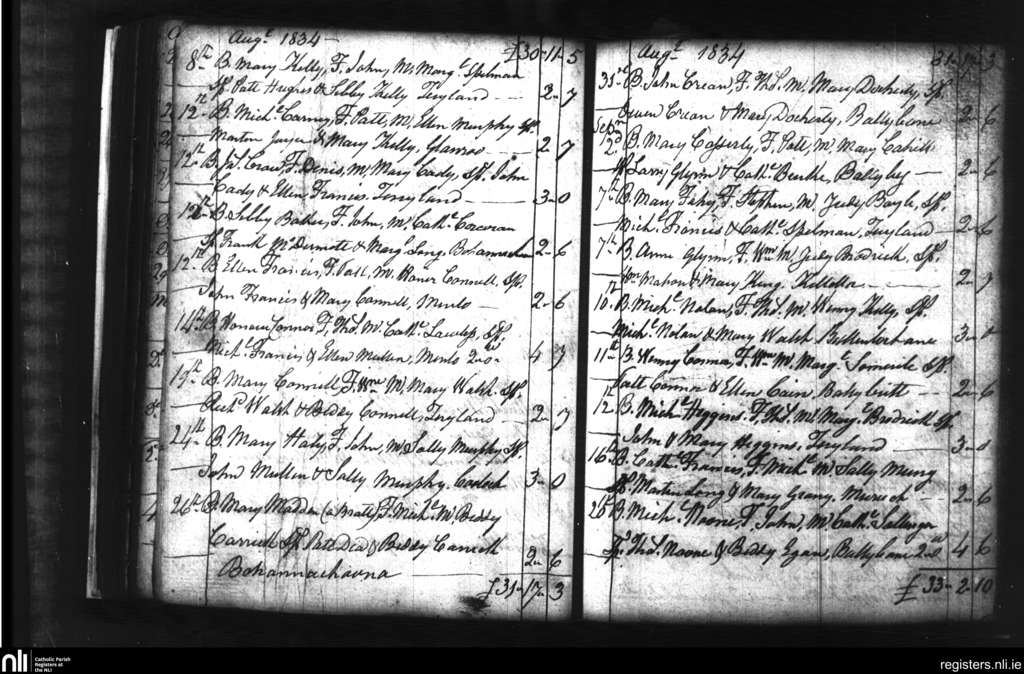 Augt 1834 — £30-11-5
8th B. Mary Kelly, F. John, M. Margt Spelman
Sp. Patt Hughes & Sibby Kelly Toryland — 2-7
12th B. Michl Carney, F. Patt, M. Ellen Murphy Sp.
Martin Joyce & Mary Kelly, — 2-7
12th B. Jas Craw, F. Denis, M. Mary Cady, Sp. John
Cady & Ellen Francis, Toryland — 3-0
12th B. Sibby F. John, M. Cathe Corcoran
Sp. Frank McDermott & Margt Long, 2-6
12th B. Ellen Francis, F. Patt, M. Honor Connell, Sp.
John Francis & Mary Connell, Menlo — 2-6
14th B. Honour Connor F. Thos. M. Cathe Lawless, Sp.
Michl Francis & Ellen Mullen, Menlo 4-7
15th B. Mary Connell F. Wm M. Mary Walsh Sp.
Richd Walsh & Biddy Connell, Toryland — 2-7
24th B. Mary Haly, F. John, M. Sally Murphy Sp.
John Mullin & Sally Murphy. 3-0
26th B. Mary Madden (a Bratt) F. Michl M. Biddy
Carrick Sp. Patt Dea & Biddy Carrick
2-6
£31-17-3
Augt 1834 31-17-3
31st B. John Crean, F. Thos. M. Mary Docherty, Sp.
Owen Crean & Mary Docherty, Ballybane 2-6
Septr
2d B. Mary Casserly, F. Patt, M. Mary Cahill
Sp. Larry Glynn & Cathe Burke, — 2-6
7th B. Mary Fahy, F. Stephen, M. Judy Boyle, Sp.
Michl Francis & Cathe Spelman, Toryland — 2-6
7th B. Anne Glynn, F. Wm M. Judy Brodrick Sp.
Mahon & Mary King. — 2-7
10th B. Michl Nolan, F. Thos. M. Henry Kelly, Sp.
Michl Nolan & Mary Walsh
11th B. Henry Connor, F. Wm M. Margt Sp.
Patt Connor & Ellen Cain, Ballybritt — 2-6
12th B. Michl Heggins. F. Thos. M. Mary Brodrick Sp.
John & Mary Heggins, Toryland — 3-0
16th B. Cathe Francis, F. Michl M. Sally
Sp. Martin Long & Mary — 2-6
25th B. Michl Noone, F. John, M. Cathe
Sp. Thos. Noone & Biddy Egan, Ballybane 4-6
£33-2-10
nli
Catholic Parish
Registers at
the NLI
registers.nli.ie